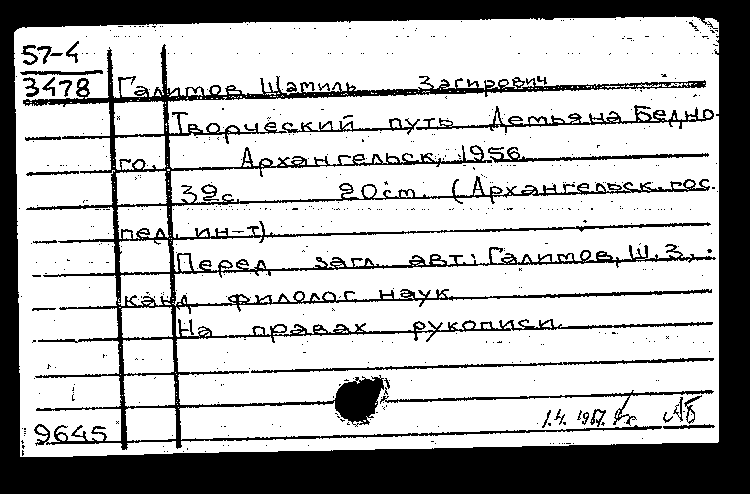 57-4
3478 Галимов, Шамиль Загирович
Творческий путь Демьяна Бедно-
го. Архангельск, 1956.
39с. 20см. (Архангельск. гос.
пед. ин-т).
Перед загл. авт.: Галимов, Ш. З.,
канд. филолог. наук.
На правах рукописи.
9645 1.4. 1957. АБ